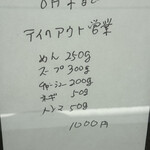 テイクアウト営業
めん 250g
スープ 300g
チャーシュー 200g
ネギ 50g
メンマ 50g
1000円